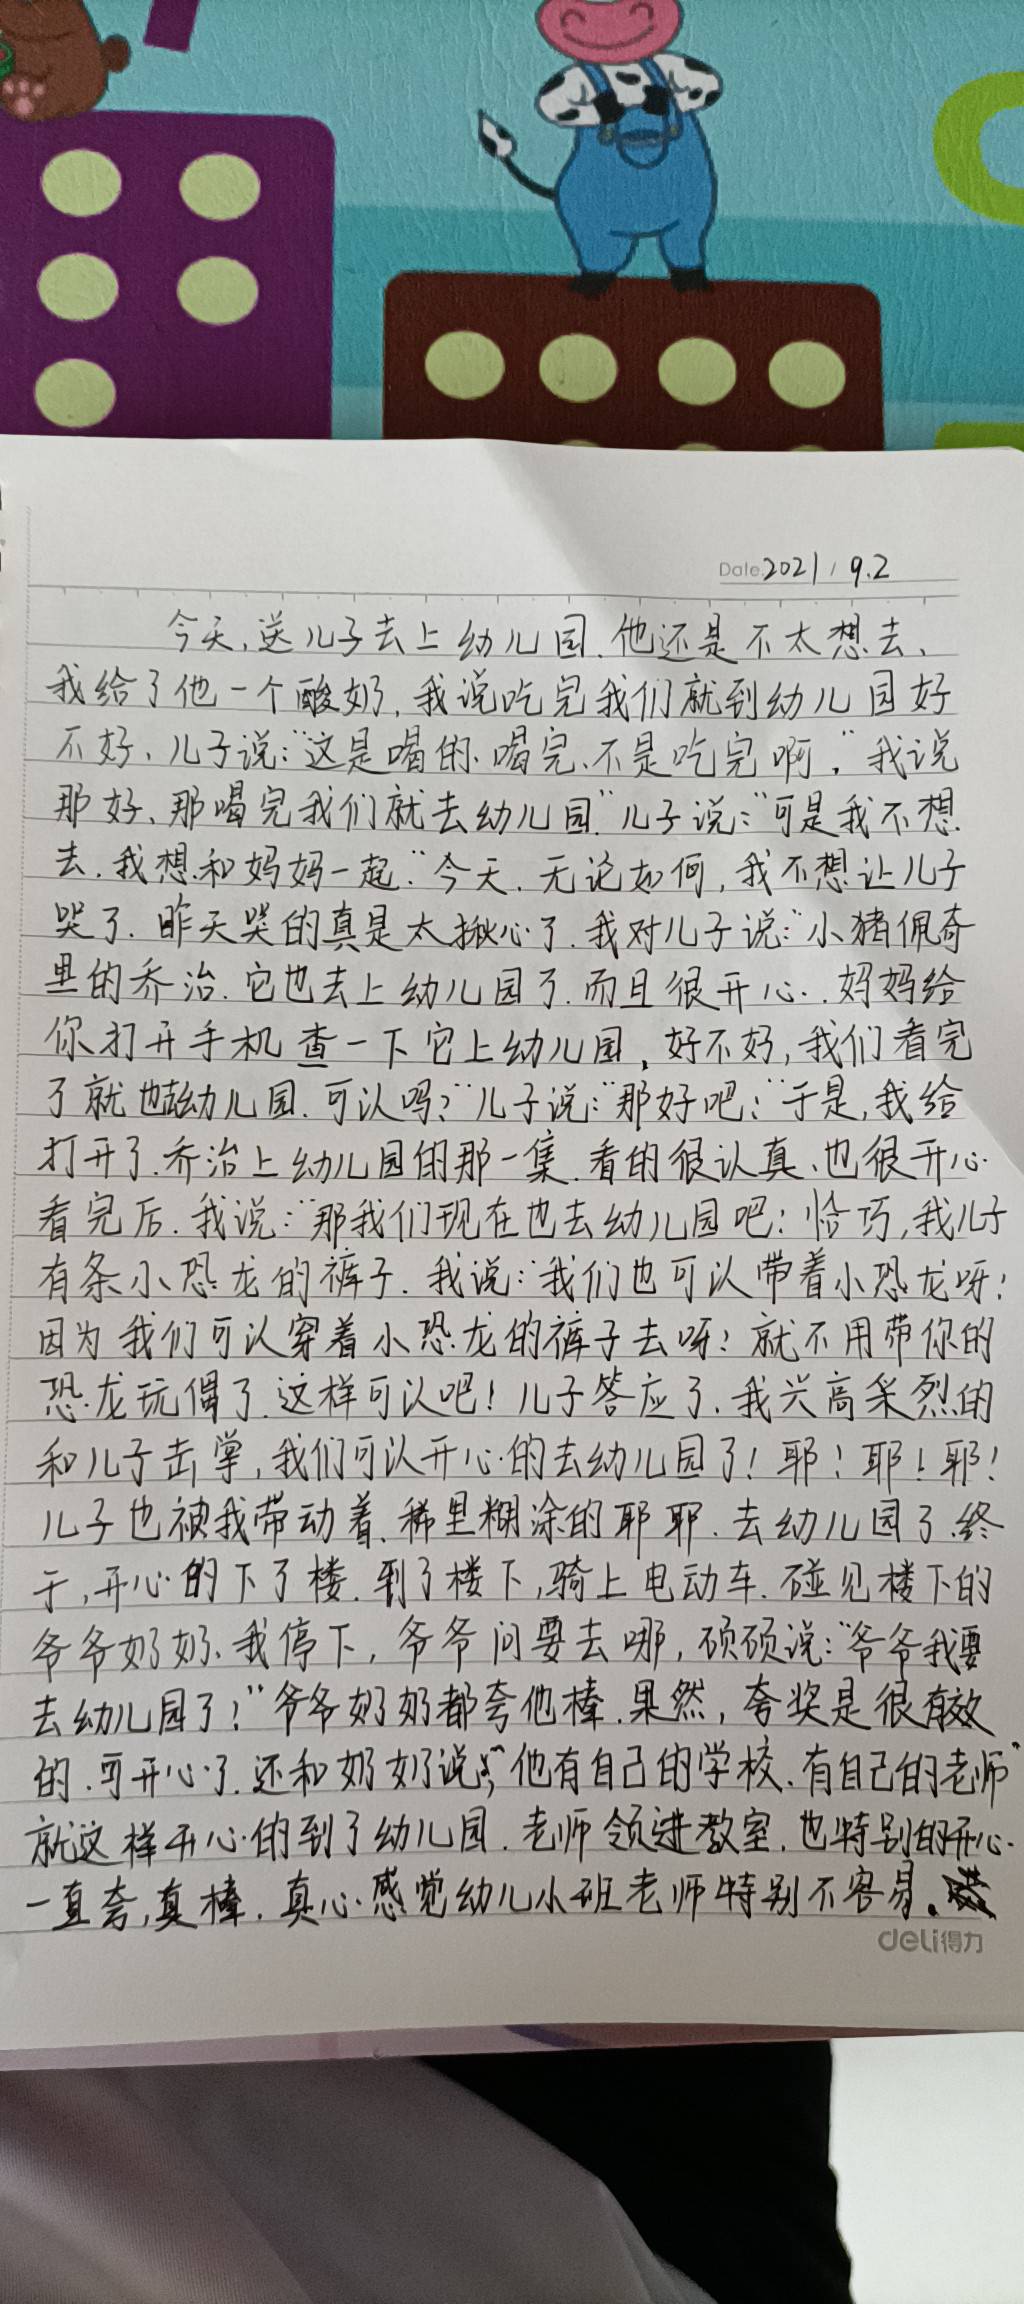 Date 2021 / 9.2
今天,送儿子去上幼儿园.他还是不太想去、
我给了他一个酸奶,我说吃完我们就到幼儿园好
不好、儿子说:"这是喝的.喝完、不是吃完啊."我说
那好、那喝完我们就去幼儿园"儿子说:"可是我不想
去.我想和妈妈一起."今天.无论如何,我不想让儿子
哭了.昨天哭的真是太揪心了.我对儿子说:"小猪佩奇
里的乔治.它也去上幼儿园了.而且很开心..妈妈给
你打开手机查一下它上幼儿园,好不好,我们看完
了就也去幼儿园.可以吗?"儿子说:"那好吧!"于是,我给
打开了.乔治上幼儿园的那一集.看的很认真、也很开心.
看完后.我说:"那我们现在也去幼儿园吧!恰巧,我儿子
有条小恐龙的裤子.我说:"我们也可以带着小恐龙呀!
因为我们可以穿着小恐龙的裤子去呀!就不用带你的
恐龙玩偶了.这样可以吧!儿子答应了.我兴高采烈的
和儿子击掌,我们可以开心的去幼儿园了!耶!耶!耶!
儿子也被我带动着.稀里糊涂的耶耶.去幼儿园了.终
于,开心的下了楼.到了楼下,骑上电动车.碰见楼下的
爷爷奶奶.我停下,爷爷问要去哪,硕硕说:"爷爷我要
去幼儿园了!"爷爷奶奶都夸他棒.果然,夸奖是很有效
的.可开心了.还和奶奶说:"他有自己的学校.有自己的老师"
就这样开心的到了幼儿园.老师领进教室.也特别的开心.
一直夸,真棒.真心感觉幼儿小班老师特别不容易.
deli得力